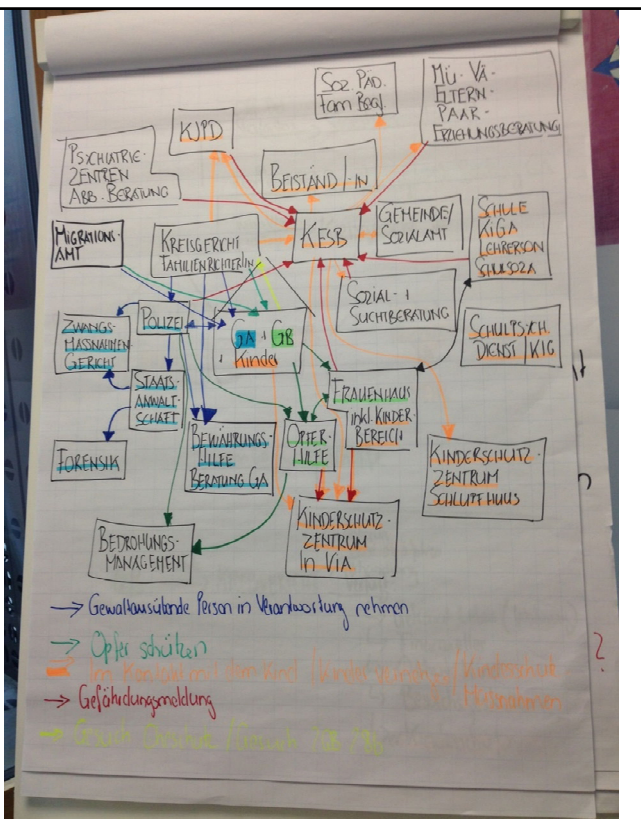 SOZ. PÄD.
FAM BEGL.
MÜ- VÄ-
ELTERN-
PAAR-
ERZIEHUNGSBERATUNG
KJPD
PSYCHIATRIE-
ZENTREN
ABB. BERATUNG
BEISTÄND/-IN
MIGRATIONS-
AMT
KREISGERICHT
FAMILIENRICHTERIN
KESB
GEMEINDE/
SOZIALAMT
SCHULE
KIGA
LEHRERSON
SCHULSOZA
SOZIAL- +
SUCHTBERATUNG
ZWANGS-
MASSNAHMEN-
GERICHT
POLIZEI
GA + GB
+ Kinder
SCHULPSYCH.
DIENST / KIG
STAATS-
ANWALT-
SCHAFT
FRAUENHAUS
INKL. KINDER
BEREICH
FORENSIK
BEWÄHRUNGS-
HILFE
BERATUNG GA
OPFER-
HILFE
KINDERSCHUTZ-
ZENTRUM
SCHLUPFHUUS
BEDROHUNGS-
MANAGEMENT
KINDERSCHUTZ-
ZENTRUM
In VIA
→ Gewaltausübende Person in Verantwortung nehmen
→ Opfer schützen
Im Kontakt mit dem Kind / Kinder / Kindesschutz
Massnahmen
→ Gefährdungsmeldung
?